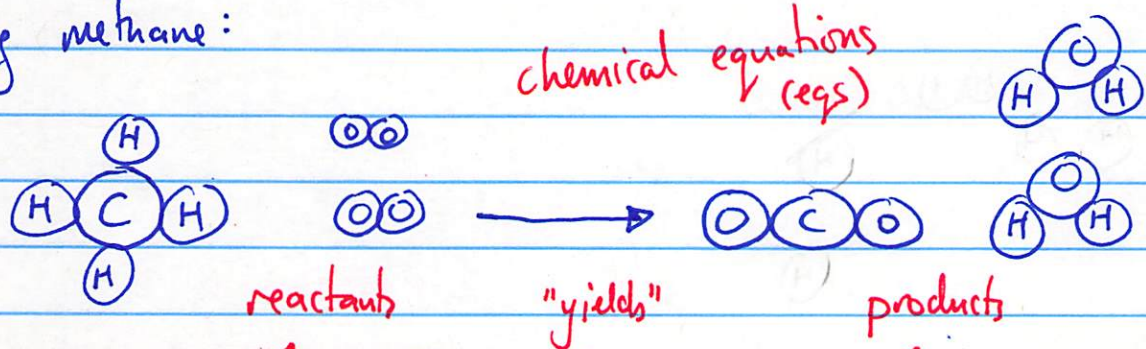 methane:
chemical equations
(eqs)
O
H H
H
O O
H C H
O O
O C O
O
H H
H
reactants "yields" products